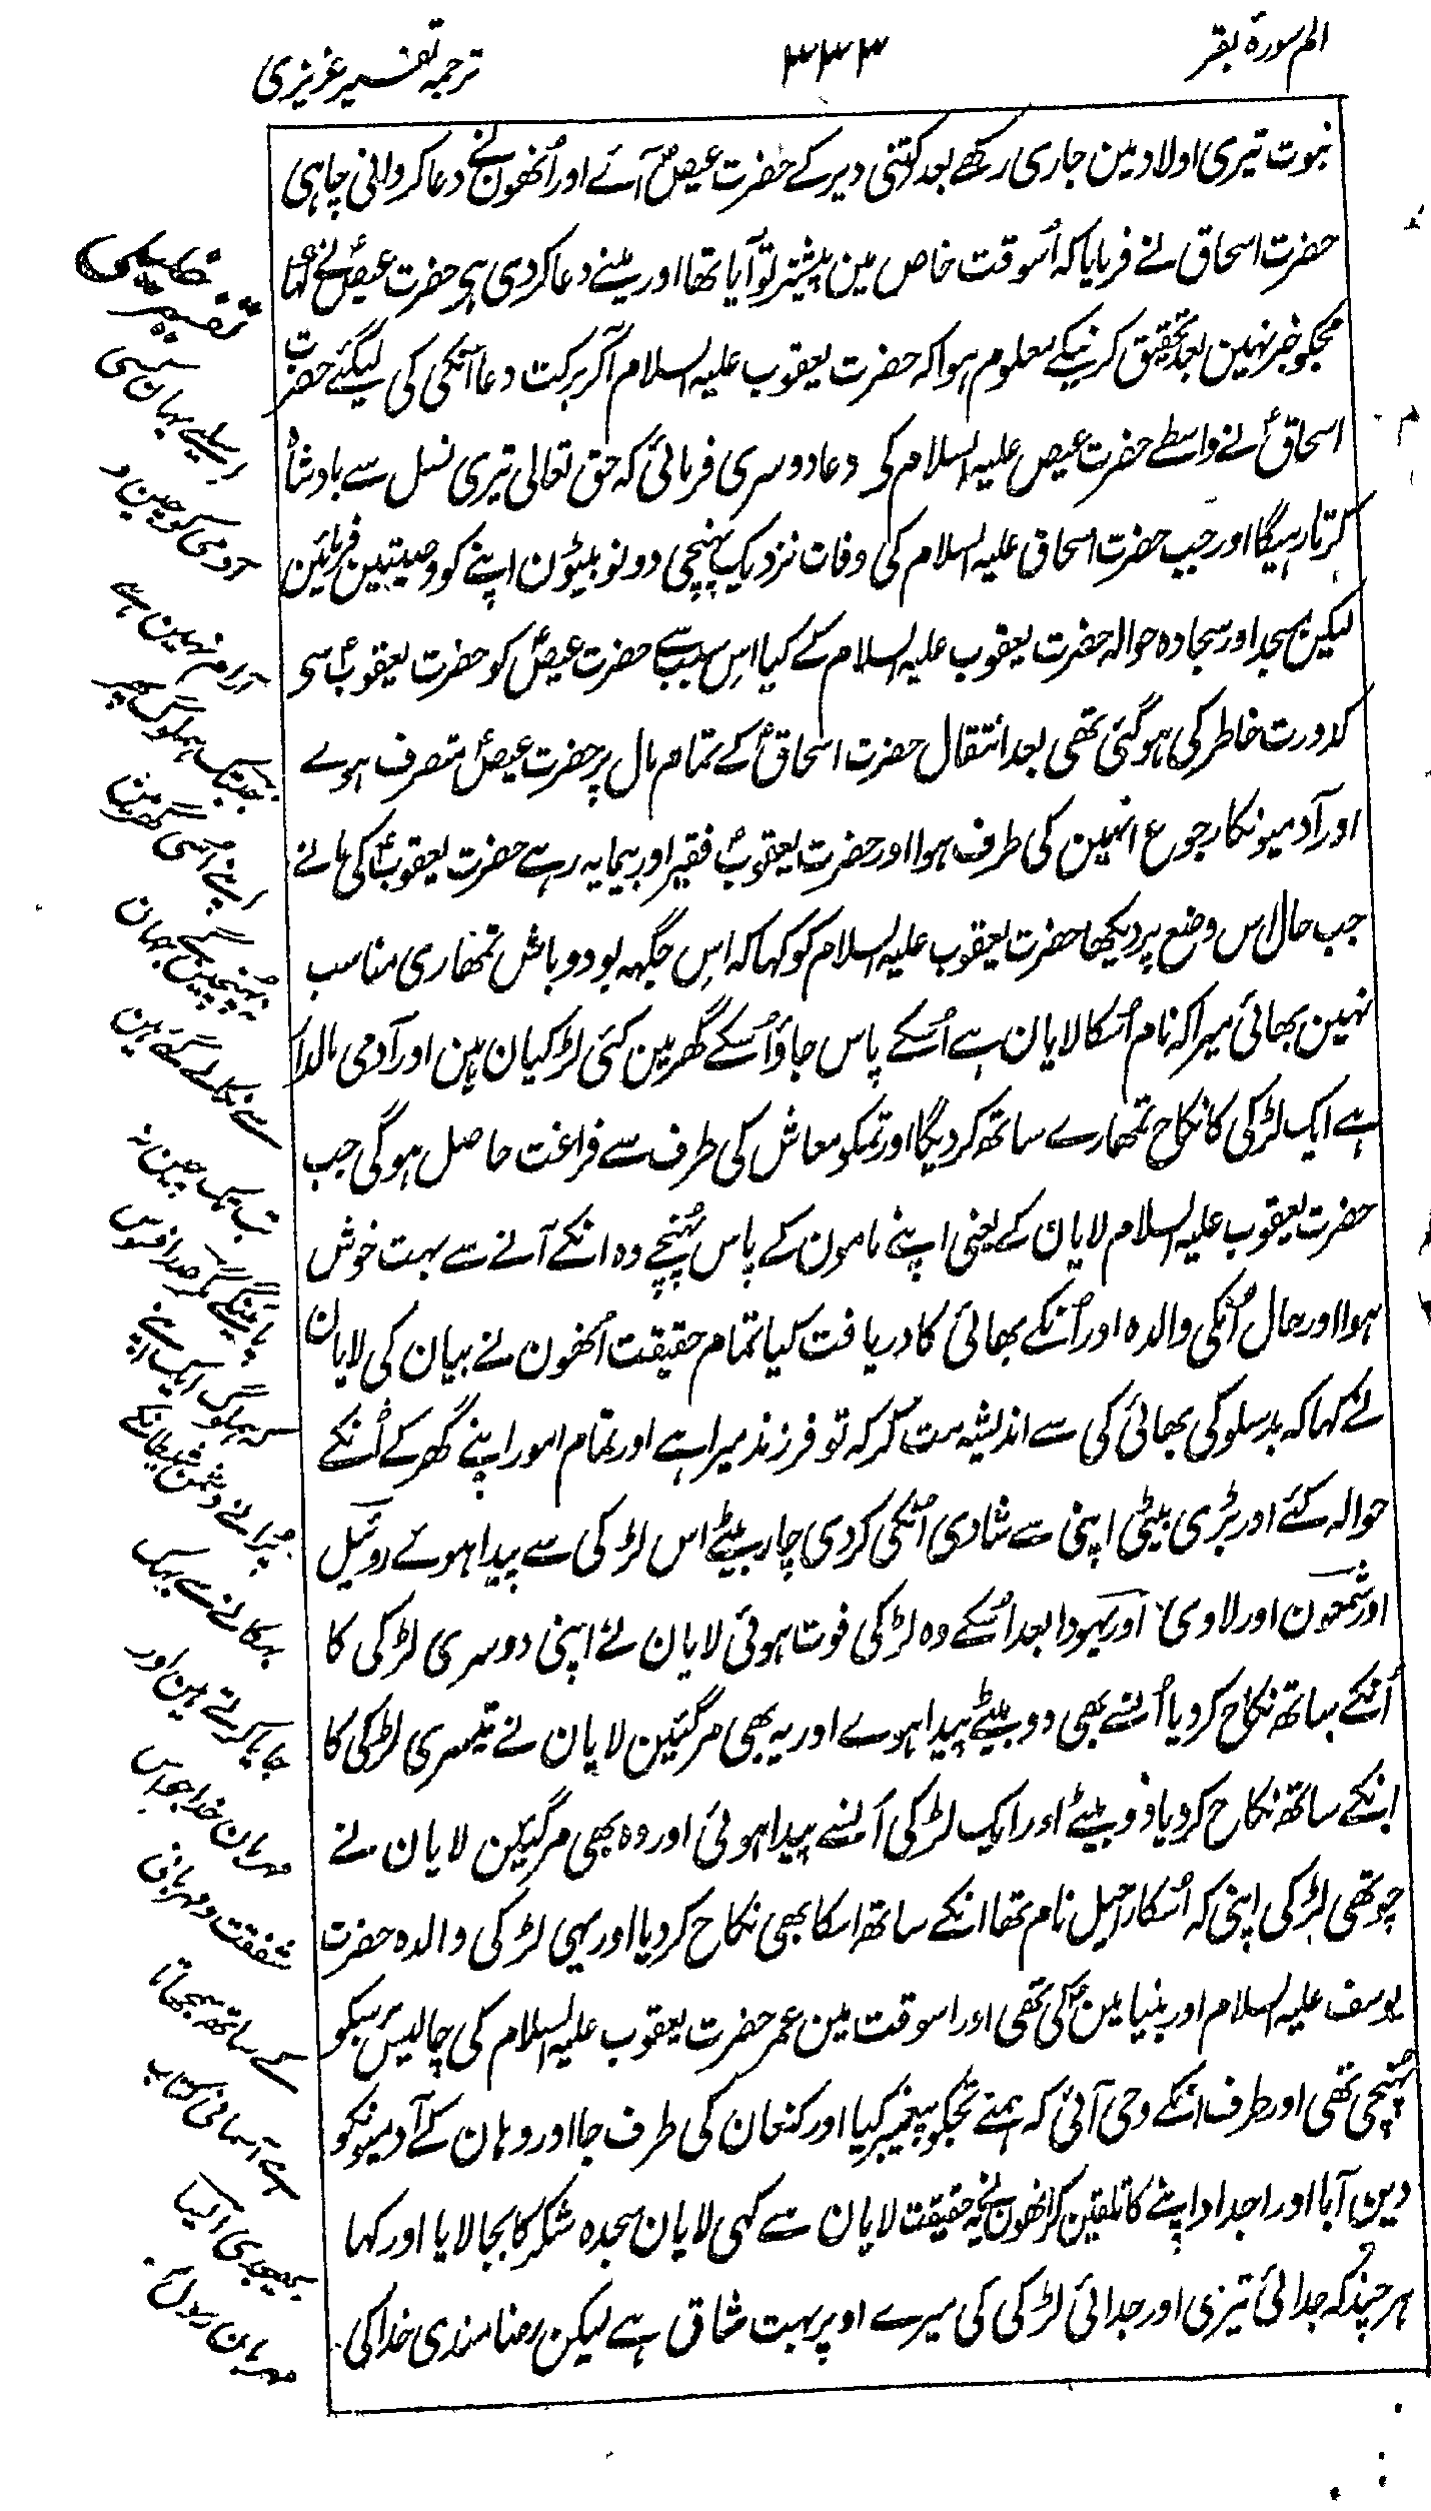 الم سورۃ بقر
۳۳۳
ترجمہ تفسیر عزیزی
نبوت تیری اولاد مین جاری رکھے بعد کتنی دیر کے حضرت عیصؑ آئے اور اُنھون نے دعا کروانی چاہی
حضرت اسحاق نے فرمایا کہ اُسوقت خاص مین پیشتر تو آیا تھا اور مینے دعا کردی ہی حضرت عیصؑ نے کہا
مجکو خبر نہین بعد تحقیق کرنیکے معلوم ہوا کہ حضرت یعقوب علیہ السلام آکر برکت دعا آنکی کی لیگئے حضرت
اسحاقؑ نے واسطے حضرت عیص علیہ السلام کی دعا دوسری فرمائی کہ حق تعالی تیری نسل سے بادشاہ
کرتا رہیگا اور جب حضرت اسحاق علیہ السلام کی وفات نزدیک پہنچی دونو بیٹون اپنے کو وصیتین فرمائین
لیکن مسجد اور سجادہ حوالہ حضرت یعقوب علیہ السلام کے کیا اس سبب سے حضرت عیصؑ کو حضرت یعقوبؑ سی
کدورت خاطر کی ہوگئی تھی بعد انتقال حضرت اسحاقؑ کے تمام مال پر حضرت عیصؑ متصرف ہوے
اور آدمیونکا رجوع انہین کی طرف ہوا اور حضرت یعقوبؑ فقیر اور بیمایہ رہے حضرت یعقوبؑ کی مانے
جب حال اس وضع پر دیکھا حضرت یعقوب علیہ السلام کو کہا کہ اس جگہہ بود و باش تمھاری مناسب
نہین بھائی میرا کہ نام اُسکا لایان ہے اُسکے پاس جاؤ اُسکے گھر مین کئی لڑکیان ہین اور آدمی مالدار
ہے ایک لڑکی کا نکاح تمھارے ساتھ کردیگا اور تمکو معاش کی طرف سے فراغت حاصل ہوگی جب
حضرت یعقوب علیہ السلام لایان کے یعنی اپنے مامون کے پاس پُہنچے وہ انکے آنے سے بہت خوش
ہوا اور حال اُنکی والدہ اور اُنکے بھائی کا دریافت کیا تمام حقیقت اُنھون نے بیان کی لایان
نے کہا کہ بدسلوکی بھائی کی سے اندیشہ مت کر کہ تو فرزند میرا ہے اور تمام امور اپنے گھر کے اُنکے
حوالہ کئے اور بڑی بیٹی اپنی سے شادی اُنکی کردی چار بیٹے اس لڑکی سے پیدا ہوئے روئیل
اور شمعون اور لاوی اور یہودا بعد اُسکے وہ لڑکی فوت ہوئی لایان نے اپنی دوسری لڑکی کا
اُنکے ساتھ نکاح کردیا اُنسے بھی دو بیٹے پیدا ہوے اور یہ بھی مرگئین لایان نے تیسری لڑکی کا
انکے ساتھ نکاح کردیا دو بیٹے اور ایک لڑکی اُنسے پیدا ہوئی اور وہ بھی مرگئین لایان نے
چوتھی لڑکی اپنی کہ اُسکا راحیل نام تھا انکے ساتھ اسکا بھی نکاح کردیا اور یہی لڑکی والدہ حضرت
یوسف علیہ السلام اور بنیامینؑ کی تھی اور اسوقت مین عمر حضرت یعقوب علیہ السلام کی چالیس برسکو
پُہنچی تھی اور طرف انکے وحی آئی کہ ہمنے تجکو پیغمبر کیا اور کنعان کی طرف جا اور وہان کے آدمیونکو
دین آبا اور اجداد اپنے کا تلقین کر انھون نے یہ حقیقت لایان سے کہی لایان سجدہ شکر کا بجا لایا اور کہا
ہر چند کہ جدائی تیری اور جدائی لڑکی کی میرے اوپر بہت شاق ہے لیکن رضامندی خدا کی
تفسیر خلیلی
اسلیے یہان کسی
آدمی کو چین و
آرام نہین ہے
جبتک ہملوگ پھر
اپنے اُسی گھر مین نہ
پہنچینگے جہان
سے نکالے گئے ہین
تب تک چین نہ
پاینگے مگر صد افسوس
کہ ہملوگ ایک اپنے
پرانے دشمن شیطانکے
بہکانے سے بہک
جایا کرتے ہین اور
مہربان خدا جو اس
شفقت و مہربانی
کے ساتھ سمجھاتا
ہے آسمانی کتاب
بھیجدی اکیا
مہربان رسول